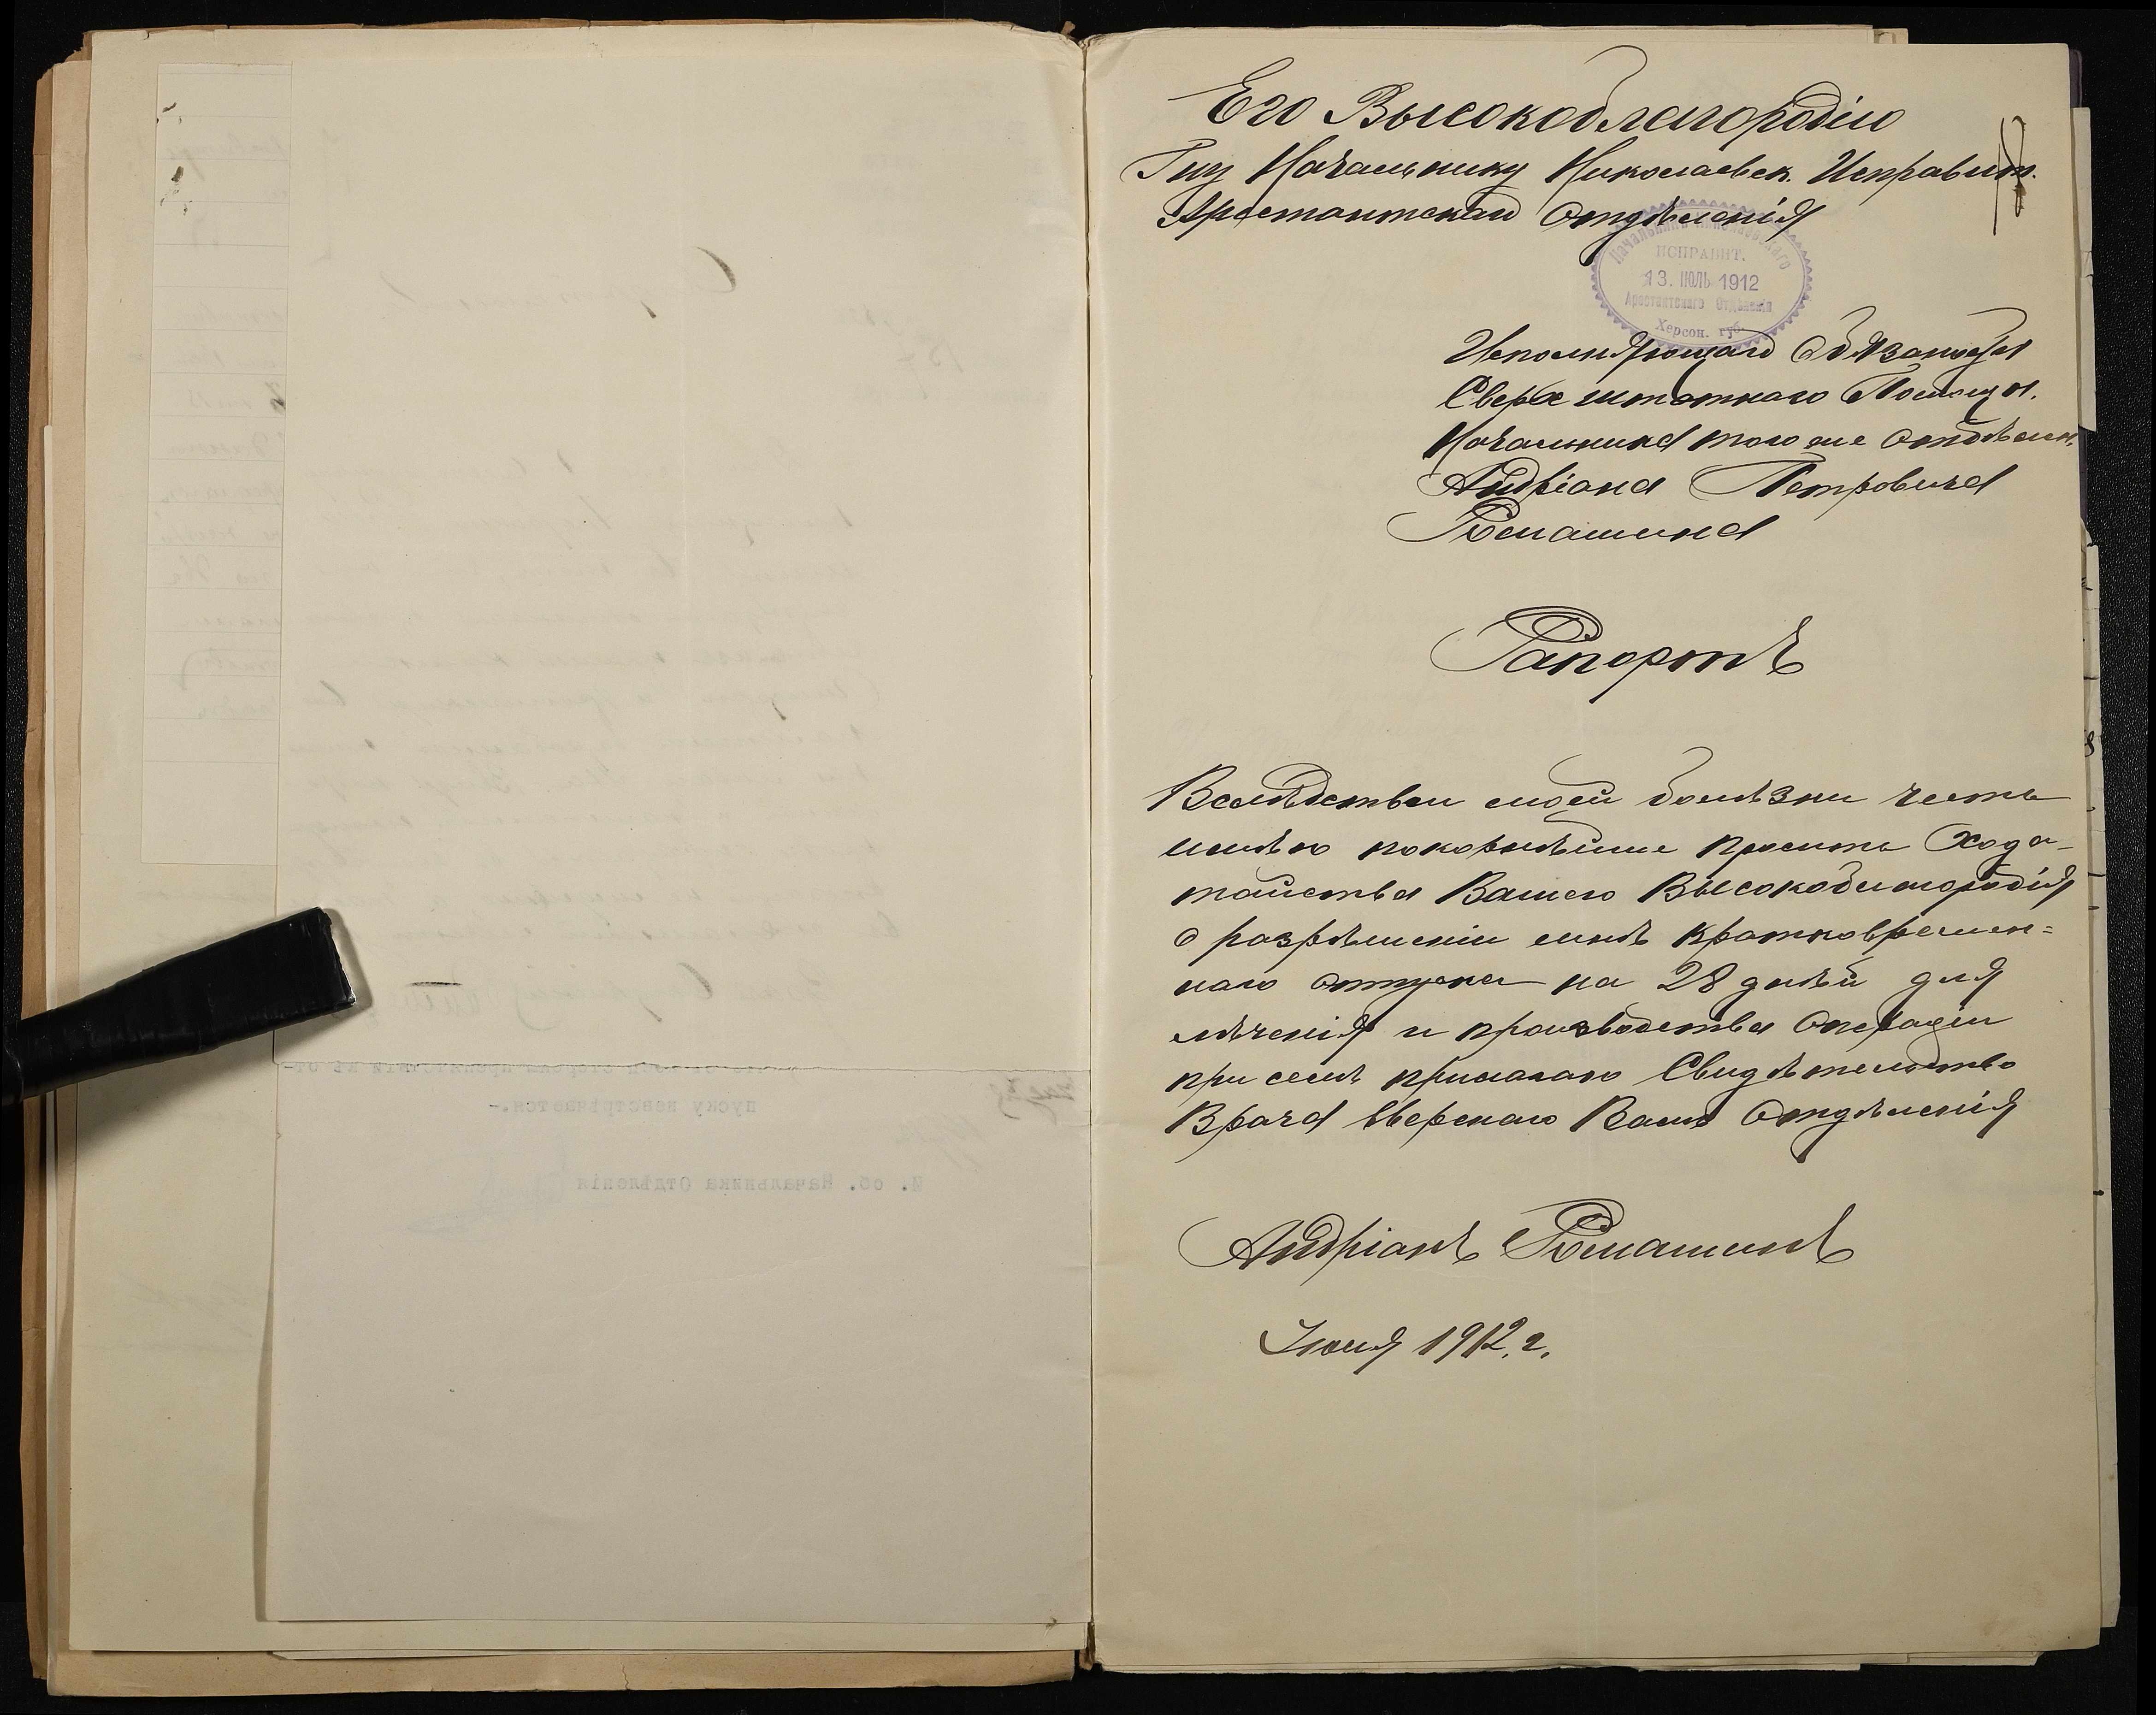 Его Высокоблагородію
Гну Начальнику Николаевск. Исправит.
Арестантскаго Отдѣленія
Начальникъ Николаевскаго
ИСПРАВИТ.
13. ІЮЛЬ 1912
Арестантскаго Отдѣленія
Херсон. губ.
Исполняющаго Обязаности
Сверхштатнаго Помощн.
Начальника того же Отдѣлен.
Андріана Петровича
Ромашина
Рапортъ
Вслѣдствіи моей болѣзни честь
имѣю покорнѣйше просить Хода-
тайства Вашего Высокоблагородія
о разрѣшеніи мнѣ кратковремен=
наго отпуска на 28 дней для
лѣченія и производства Операціи
при семъ прилагаю Свидѣтельство
Врача Ввѣренаго Вамъ Отдѣленія
Андріанъ Ромашинъ
Іюля 1912 г.
пуску невстрѣчается.-
И. об. Начальника Отдѣленія